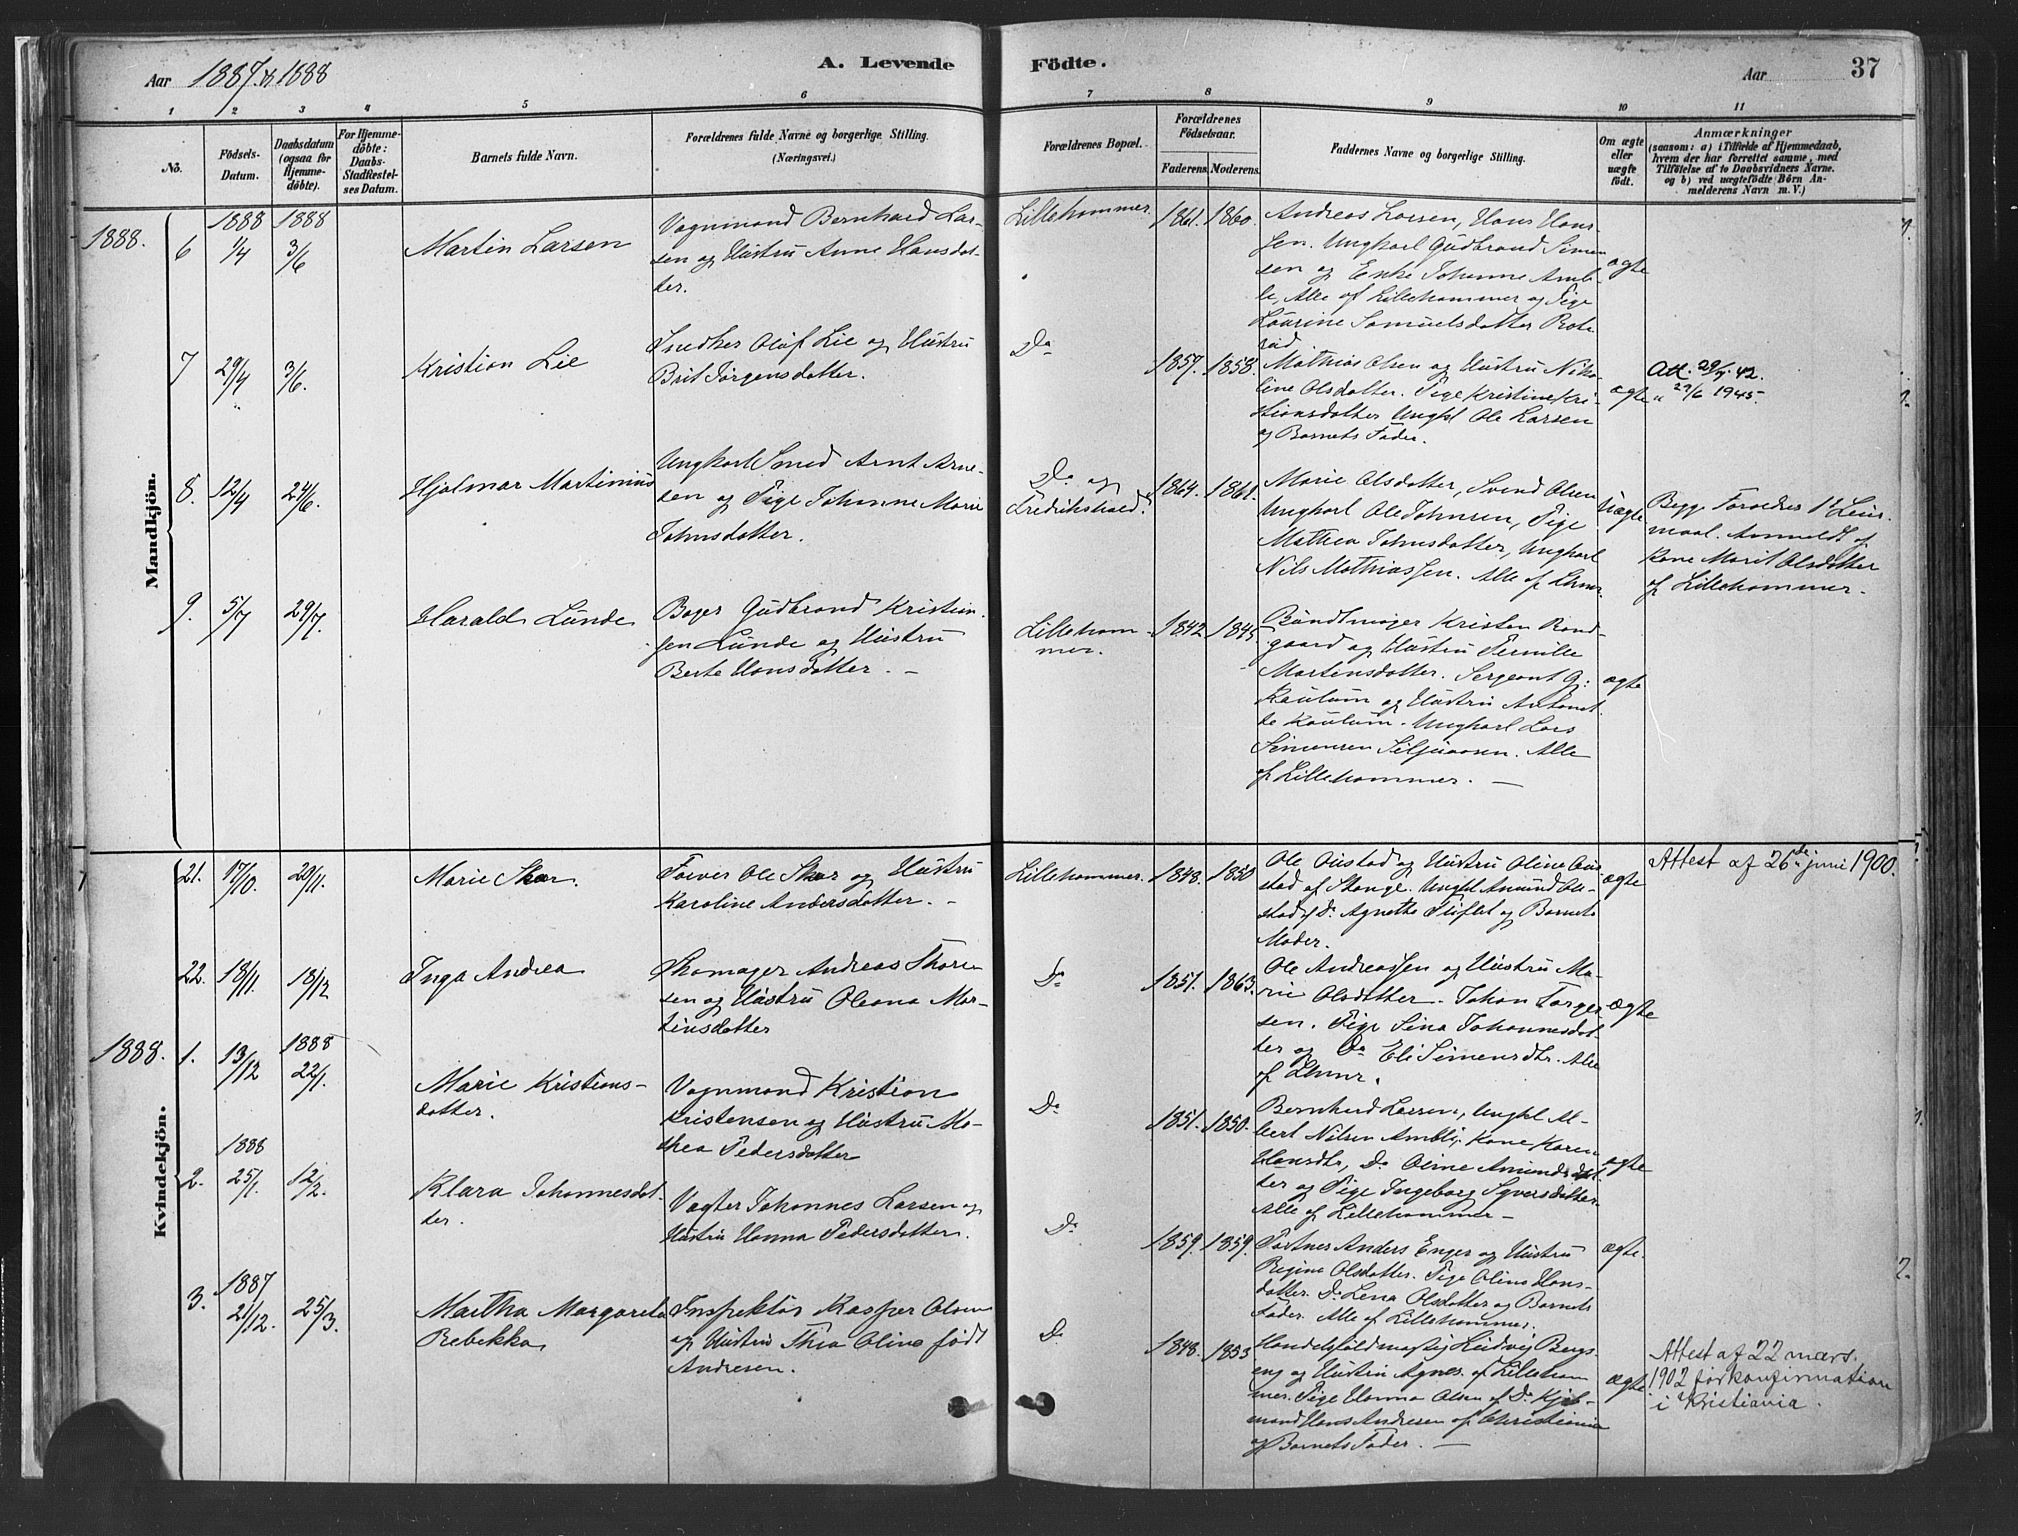 Aar 1887 & 1888
A. Levende
Födte.
Aar
37
1 2 3 4 5 6 7 8 9 10 11
No.
Födsels-
Datum.
Daabsdatum
(ogsaa for
Hjemme-
döbte).
For Hjemme-
döbte:
Daabs-
Stadfæstel-
ses Datum.
Barnets fulde Navn.
Forældrenes fulde Navne og borgerlige Stilling.
(Næringsvei.)
Forældrenes Bopæl.
Forældrenes
Födselsaar.
Faderens. Moderens.
Faddernes Navne og borgerlige Stilling.
Om ægte
eller
uægte
födt.
Anmærkninger
(saasom: a) i Tilfælde af Hjemmedaab,
hvem der har forrettet samme, med
Tilföielse af to Daabsvidners Navne.
og b) ved uægtefödte Börn An-
melderens Navn m. V.)
Mandkjön.
1888.
6
1888
1/4
1888
3/6
Martin Larsen
Vognmand Bernhard Lar-
sen og Hustru Anne Hansdat-
ter.
Lillehammer.
1861. 1860.
Andreas Larsen, Hans Hans-
sen. Ungkarl Gudbrand Simen
sen og Enke Johanne Amb-
le, Alle af Lillehammer og Pige
Laurine Samuelsdatter Rote
rud
ægte
7
29/4
3/6.
Kristian Lie
Snedker Olaf Lie og Hustru
Brit Jörgensdatter.
Do
1857. 1858.
Mathias Olsen og Hustru Niko-
line Olsdatter. Pige Kristine Kri-
stiansdatter Ungkl Ole Larsen
og Barnets Fader.
ægte
Att. 29/4. 42.
" 29/6 1945.
8.
12/4
24/6.
Hjalmar Martinius
Ungkarl Smed Arnt Arne-
sen og Pige Johanne Marie
Johnsdatter.
Do og
Fredrikshald.
1864. 1861.
Marie Olsdatter, Svend Olsen
Ungkarl Ole Johnsen, Pige
Mathea Johnsdatter, Ungkarl
Nils Mathiassen. Alle af Lhmr.
Uægte
Begge Foræedres 1ste Leier-
maal. Anmeldt af
Kone Marit Olsdatter
af Lillehammer.
9.
5/7
29/7.
Harald Lunde
Bager Gudbrand Kristian-
sen Lunde og Hustru
Berte Hansdatter. -
Lilleham-
mer.
1842 1845
Bundtmager Kristen Rand-
gaard og Hustru Pernille
Martinsdatter. Sergeant G:
Kaulum og Hustru Antonet-
te Kaulum. Ungkarl Lars
Simensen Siljuaasen. Alle
af Lillehammer. —
ægte
Kvindekjön.
21.
17/10.
20/11.
Marie Skar.
Farver Ole Skar og Hustru
Karoline Andersdatter. -
Lillehammer.
1843. 1850
Ole Oustad og Hustru Oline Ou-
stad af Stange. Ungkl Amund Ou-
stad af Do Agnethe Tüflet og Barnets
Moder.
ægte
Attest af 26de juni 1900.
22.
18/11.
18/12
Inga Andrea
Skomager Andreas Thore
sen og Hustru Oleana Mar-
tinsdatter
Do
1851. 1863.
Ole Andreassen og Hustru Ma-
rie Olsdatter. Johan Torger
sen. Pige Sina Johannesdat-
ter og Do Eli Simensdtr. Alle
af Lhmr.
ægte
1888. 1.
13/12
1888
22/1.
Marie Kristians-
datter.
Vognmand Kristian
Kristensen og Hustru Ma-
thea Pedersdatter
Do
1851. 1850.
Bernhard Larsen, Ungkl Al-
bert Nilsen Ambli, Kone Karen
Hansdtr, Do Oline Amundsdat-
ter og Pige Ingeborg Syversdatter.
Alle af Lillehammer —
ægte
2.
1888
25/1.
12/2.
Klara Johannesdat-
ter.
Vagter Johannes Larsen og
Hustru Hanna Pedersdatter.
Do
1859. 1859.
Portner Anders Enger og Hustru
Regine Olsdatter. Pige Oline Hans-
datter. Do Lena Olsdatter og Barnets
Fader. Alle af Lillehammer.
ægte.
3.
1887
21/12.
25/3.
Martha Margareta
Rebekka
Inspektör Kasper Olsen
og Hustru Thea Oline född
Andresen.
Do
1848. 1853
Handelsfuldmægtig Ludvig Bergs-
eng og Hustru Agnes. af Lilleham
mer. Pige Hanna Olsen af Do Kjöb-
mand Hans Andresen af Christiania
og Barnets Fader. —
ægte
Attest af 22 mars.
1902 for konfirmation
i Kristiania.